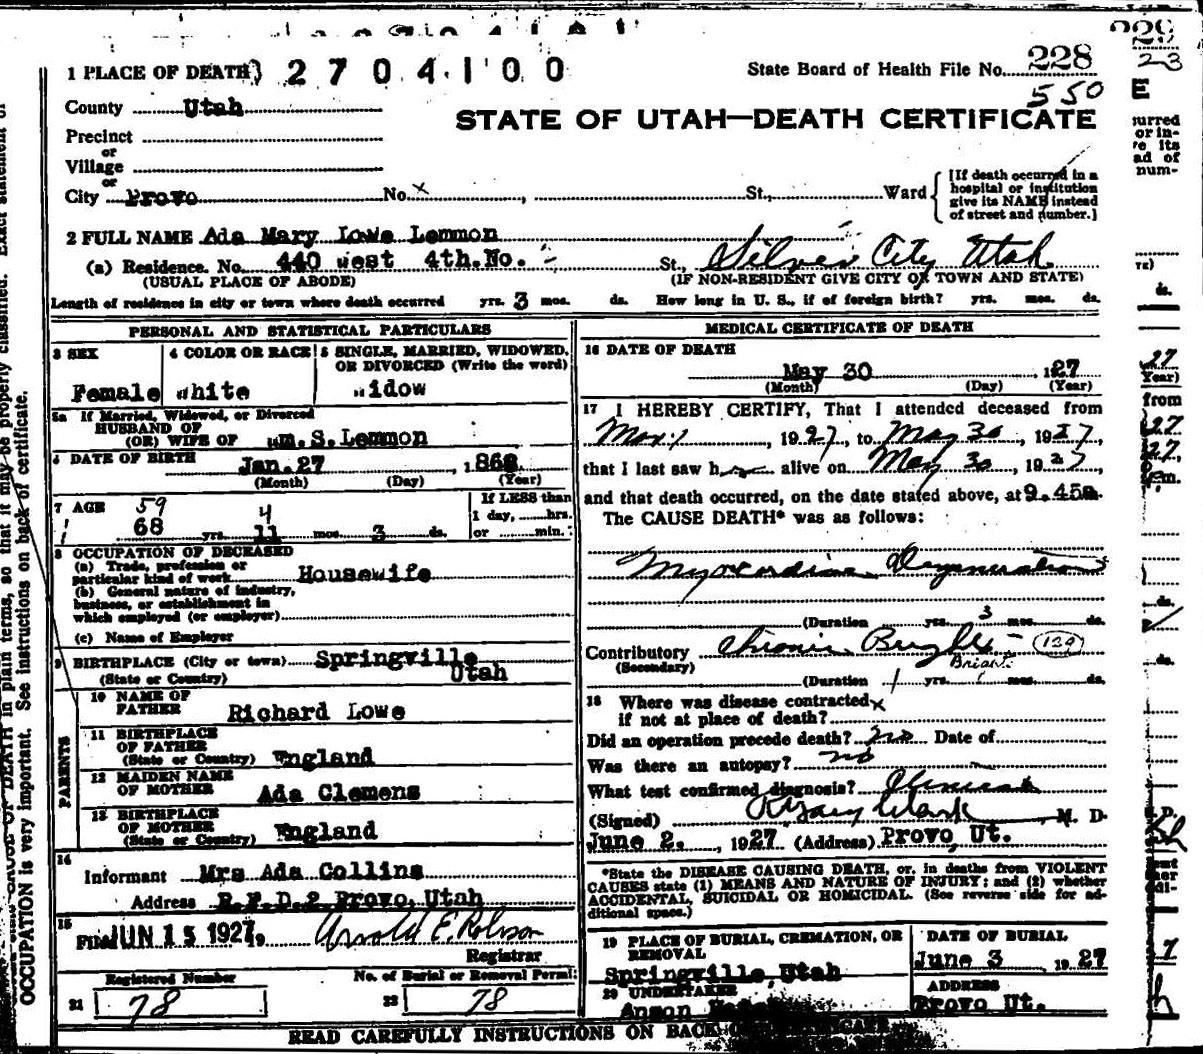 229
2-3
1 PLACE OF DEATH 2 7 0 4 1 0 0
State Board of Health File No. 228
550
County Utah
STATE OF UTAH—DEATH CERTIFICATE
Precinct
or
Village
or
City Provo No. x , St., Ward
[If death occurred in a hospital or institution give its NAME instead of street and number.]
2 FULL NAME Ada Mary Lowe Lemmon
(a) Residence. No. 440 west 4th.No. - St., Silver City Utah
(USUAL PLACE OF ABODE) (IF NON-RESIDENT GIVE CITY OR TOWN AND STATE)
Length of residence in city or town where death occurred yrs. 3 mos. ds. How long in U. S., if of foreign birth? yrs. mos. ds.
PERSONAL AND STATISTICAL PARTICULARS
3 SEX
Female
4 COLOR OR RACE
white
5 SINGLE, MARRIED, WIDOWED, OR DIVORCED (Write the word)
widow
5a If Married, Widowed, or Divorced
HUSBAND OF
(OR) WIFE OF Wm.S.Lemmon
6 DATE OF BIRTH Jan.27 , 1868
(Month) (Day) (Year)
7 AGE
59 4
68 yrs. 11 mos. 3 ds.
If LESS than
1 day, hrs.
or min.
8 OCCUPATION OF DECEASED
(a) Trade, profession or
particular kind of work Housewife
(b) General nature of industry,
business, or establishment in
which employed (or employer)
(c) Name of Employer
9 BIRTHPLACE (City or town) Springville
(State or Country) Utah
PARENTS
10 NAME OF
FATHER Richard Lowe
11 BIRTHPLACE
OF FATHER
(State or Country) England
12 MAIDEN NAME
OF MOTHER Ada Clemens
13 BIRTHPLACE
OF MOTHER
(State or Country) England
14
Informant Mrs Ada Collins
Address R.F.D.2 Provo, Utah
15
JUN 15 1927 Arnold E. Robison
Registrar
Registered Number
21 78
No. of Burial or Removal Permit
22 78
MEDICAL CERTIFICATE OF DEATH
16 DATE OF DEATH
May 30 , 1927
(Month) (Day) (Year)
17 I HEREBY CERTIFY, That I attended deceased from
, 1927, to May 30, 1927,
that I last saw her alive on May 30, 1927
and that death occurred, on the date stated above, at 9.45a.
The CAUSE DEATH* was as follows:
Degeneration
(Duration yrs. 3 mos. ds.
Contributory Chronic Brights - 129
(Secondary) Bright.
(Duration 1 yrs. mos. ds.
18 Where was disease contracted x
if not at place of death?
Did an operation precede death? no Date of
Was there an autopsy? no
What test confirmed diagnosis?
(Signed) Clark , M. D.
June 2. , 1927 (Address) Provo, Ut.
*State the DISEASE CAUSING DEATH, or, in deaths from VIOLENT
CAUSES state (1) MEANS AND NATURE OF INJURY; and (2) whether
ACCIDENTAL, SUICIDAL OR HOMICIDAL. (See reverse side for ad-
ditional space.)
19 PLACE OF BURIAL, CREMATION, OR
REMOVAL
Springville, Utah
DATE OF BURIAL
June 3 1927
20 UNDERTAKER
Anson
ADDRESS
Provo Ut.
READ CAREFULLY INSTRUCTIONS ON BACK
OCCUPATION is very important. See instructions on back of certificate.